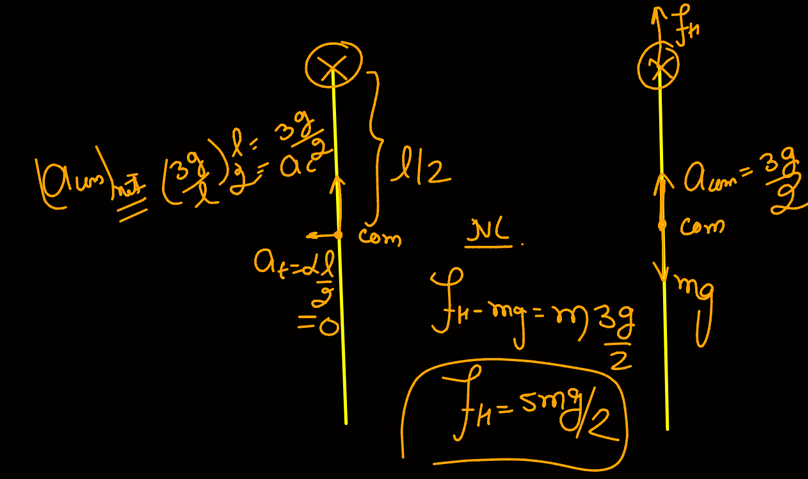 (a_com)_net = (3g/l) l/2 = 3g/2
a_c
l/2
com
a_t = α l/2
= 0
NL
f_H - mg = m 3g/2
f_H = 5mg/2
f_H
a_com = 3g/2
com
mg